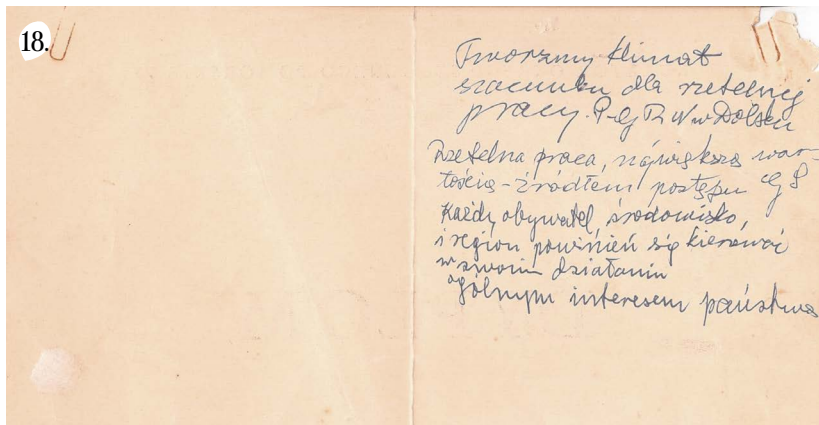 18.
Tworzmy klimat
szacunku dla rzetelnej
pracy. P-G R N w Dolsku
Rzetelna praca, największą war-
tością - źródłem postępu GS
Każdy obywatel, środowisko,
i region powinień się kierować
w swoim działaniu
ogólnym interesem państwa